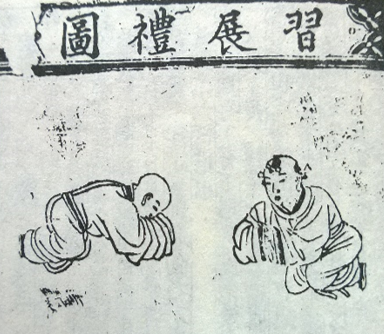 習展禮圖